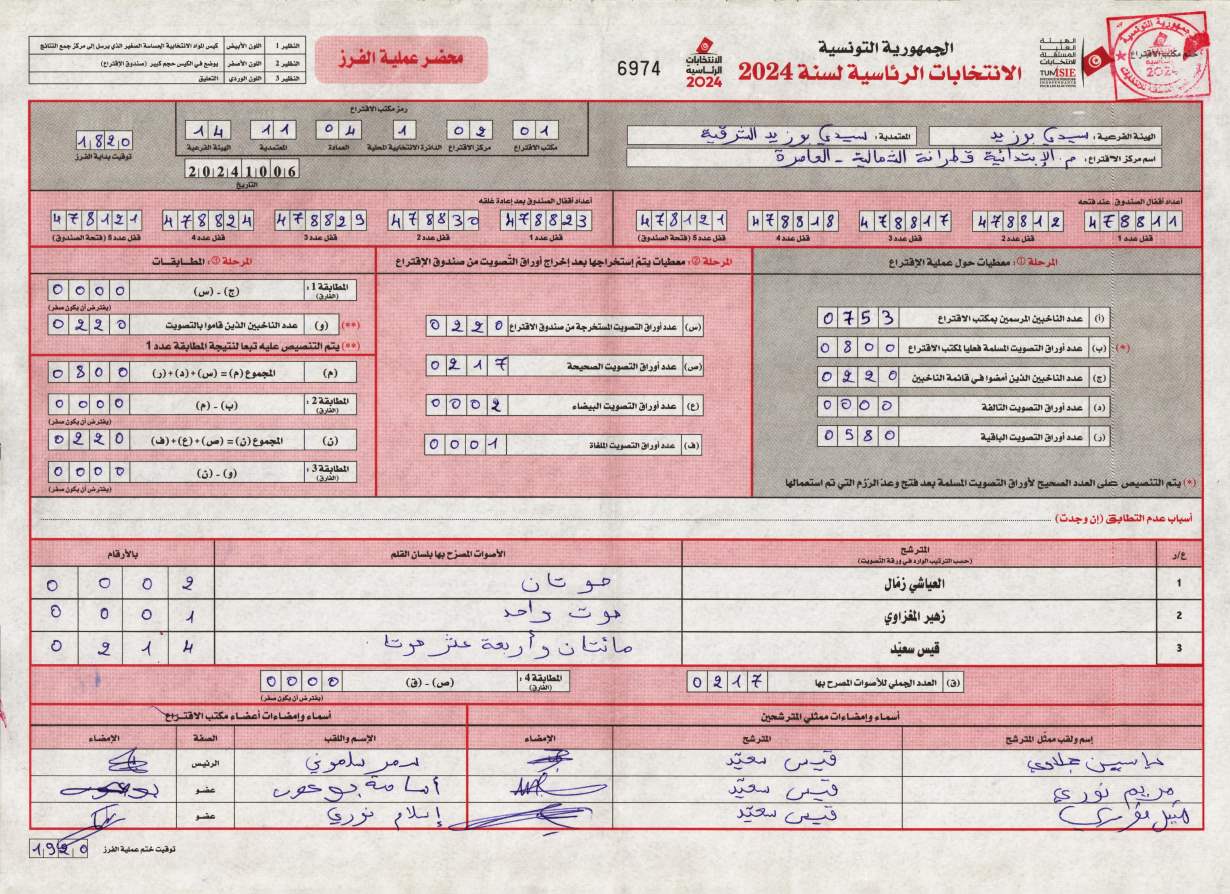 النظير 1 اللون الأبيض كيس المواد الانتخابية الحساسة الصغير الذي يرسل إلى مركز جمع النتائج
النظير 2 اللون الأصفر يوضع في الكيس حجم كبير (صندوق الإقتراع)
النظير 3 اللون الوردي التعليق
محضر عملية الفرز
6974
الانتخابات الرئاسية 2024
الجمهورية التونسية
الانتخابات الرئاسية لسنة 2024
الهيئة العليا المستقلة للانتخابات
TUNISIE
ختم مكتب الاقتراع
الهيئة الفرعية: سيدي بوزيد المعتمدية: سيدي بوزيد الشرقية
اسم مركز الاقتراع: م. الإبتدائية قطرانة الشمالية - العامرة
رمز مكتب الاقتراع
01 02 1 04 11 14
مكتب الاقتراع مركز الاقتراع الدائرة الانتخابية المحلية العمادة المعتمدية الهيئة الفرعية
20241006
التاريخ
1820
توقيت بداية الفرز
أعداد أقفال الصندوق عند فتحه
478811 478812 478817 478818 478121
قفل عدد 1 قفل عدد 2 قفل عدد 3 قفل عدد 4 قفل عدد 5 (فتحة الصندوق)
أعداد أقفال الصندوق بعد إعادة غلقه
478823 478830 478829 478824 478121
قفل عدد 1 قفل عدد 2 قفل عدد 3 قفل عدد 4 قفل عدد 5 (فتحة الصندوق)
المرحلة ①: معطيات حول عملية الإقتراع
(أ) عدد الناخبين المرسمين بمكتب الاقتراع 0753
(*) (ب) عدد أوراق التصويت المسلمة فعليا لمكتب الاقتراع 0800
(ج) عدد الناخبين الذين أمضوا في قائمة الناخبين 0220
(د) عدد أوراق التصويت التالفة 0000
(ر) عدد أوراق التصويت الباقية 0580
(*) يتم التنصيص على العدد الصحيح لأوراق التصويت المسلمة بعد فتح وعدّ الرزم التي تم استعمالها
المرحلة ②: معطيات يتم إستخراجها بعد إخراج أوراق التصويت من صندوق الإقتراع
(س) عدد أوراق التصويت المستخرجة من صندوق الاقتراع 0220
(ص) عدد أوراق التصويت الصحيحة 0217
(ع) عدد أوراق التصويت البيضاء 0002
(ف) عدد أوراق التصويت الملغاة 0001
المرحلة ③: المطابقات
المطابقة 1: (الفارق) (ج) - (س) 0000
(يفترض أن يكون صفر)
(**) (و) عدد الناخبين الذين قاموا بالتصويت 0220
(**) يتم التنصيص عليه تبعا لنتيجة المطابقة عدد 1
(م) المجموع (م) = (س)+(د)+(ر) 0800
المطابقة 2: (الفارق) (ب) - (م) 0000
(يفترض أن يكون صفر)
(ن) المجموع (ن) = (ص)+(ع)+(ف) 0220
المطابقة 3: (الفارق) (و) - (ن) 0000
(يفترض أن يكون صفر)
أسباب عدم التطابق (إن وجدت)
ع/ر المترشح (حسب الترتيب الوارد في ورقة التصويت) الأصوات المصرّح بها بلسان القلم بالأرقام
1 العياشي زمّال صوتان 0002
2 زهير المغزاوي صوت واحد 0001
3 قيس سعيّد مائتان وأربعة عشر صوتا 0214
(ق) العدد الجملي للأصوات المصرح بها 0217 المطابقة 4: (الفارق) (ص) - (ق) 0000
(يفترض أن يكون صفر)
أسماء وإمضاءات ممثلي المترشحين أسماء وإمضاءات أعضاء مكتب الاقتراع
إسم ولقب ممثّل المترشح المترشح الإمضاء الإسم واللقب الصفة الإمضاء
ياسين جلالي قيس سعيّد الرئيس
مريم نوري قيس سعيّد أسامة عضو
قيس سعيّد إسلام نوري عضو
توقيت ختم عملية الفرز 1920